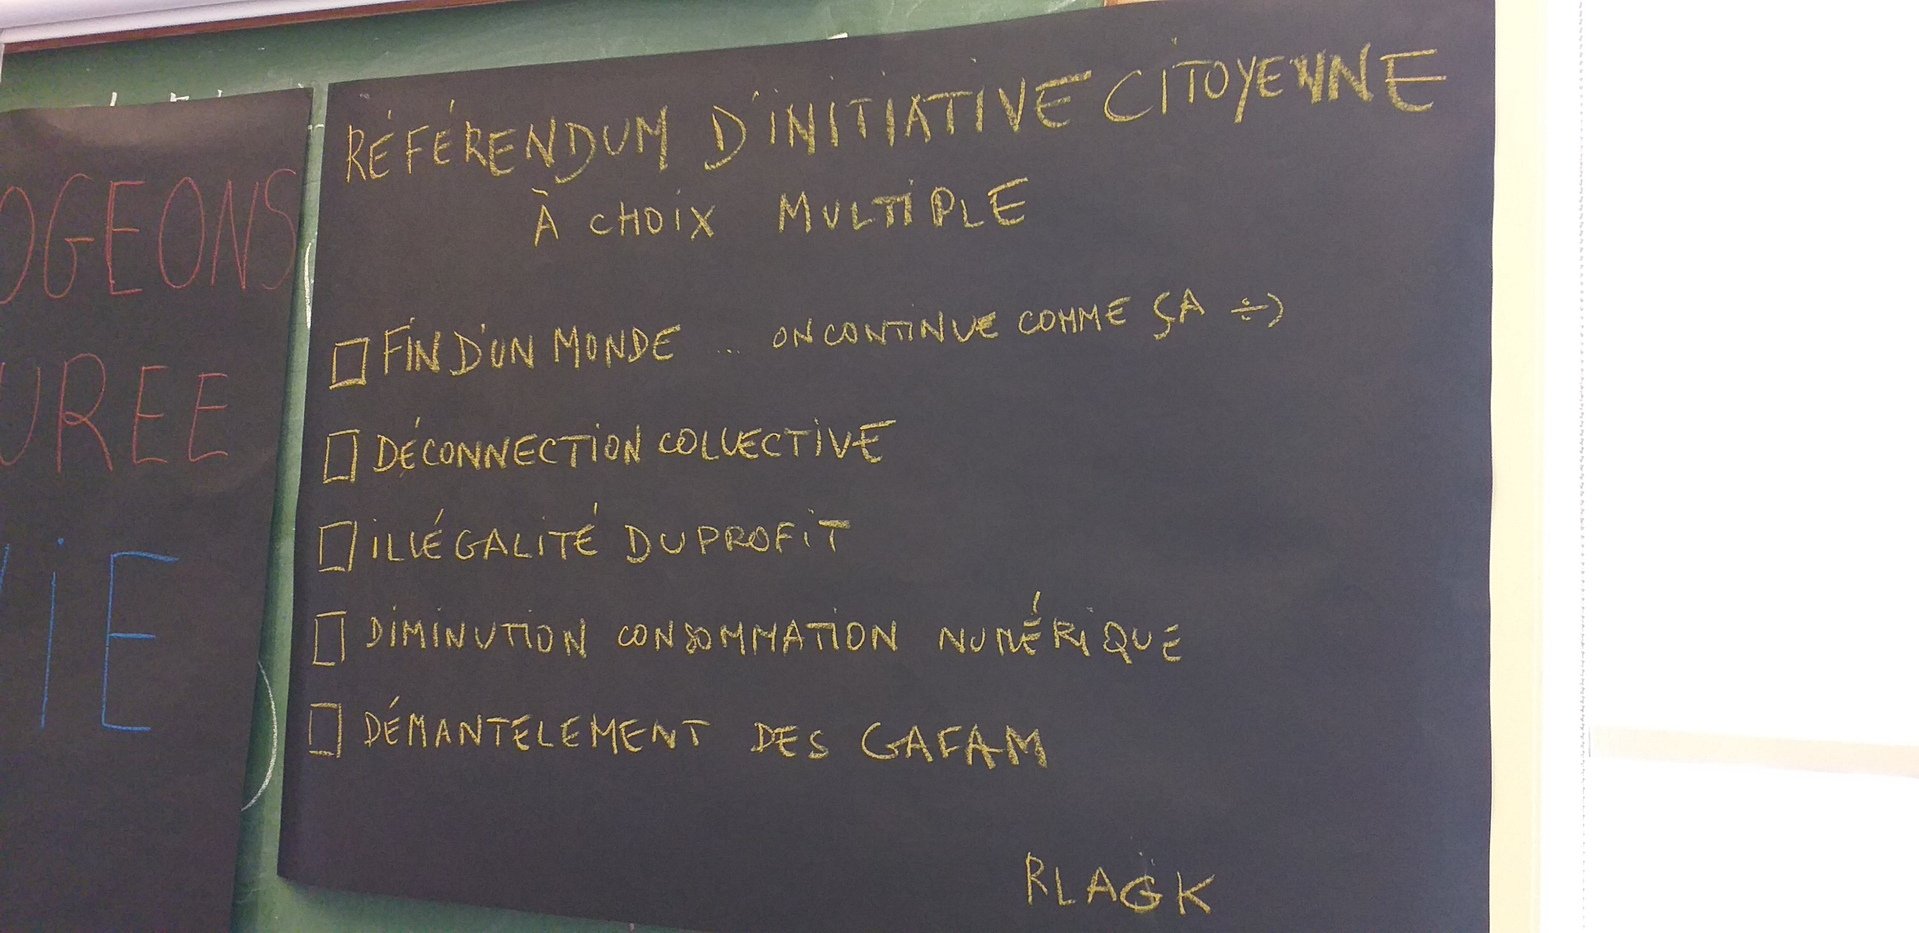 OGEONS
UREE
VIE
RÉFÉRENDUM D'INITIATIVE CITOYENNE
À CHOIX MULTIPLE
□ FIN D'UN MONDE ... ON CONTINUE COMME ÇA ÷)
□ DÉCONNECTION COLLECTIVE
□ ILLÉGALITÉ DU PROFIT
□ DIMINUTION CONSOMMATION NUMÉRIQUE
□ DÉMANTELEMENT DES GAFAM
RLAGK